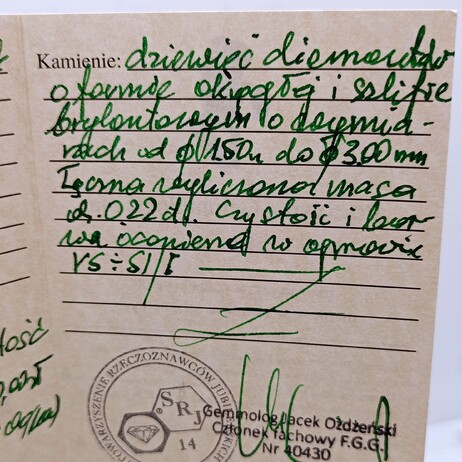 Kamienie: dziewięć diamentów
o formie okrągłej i szlifie
brylantowym o wymia-
rach od ϕ 1.50 do ϕ 3.00 mm
Łączna wyliczona masa
ok. 0.22 ct. Czystość i bar-
wa ocenione w oprawie
VS÷SI/I
STOWARZYSZENIE RZECZOZNAWCÓW JUBILERSKICH
SRJ
14
Gemmolog Jacek Ożdżeński
Członek fachowy F.G.G.
Nr 40430